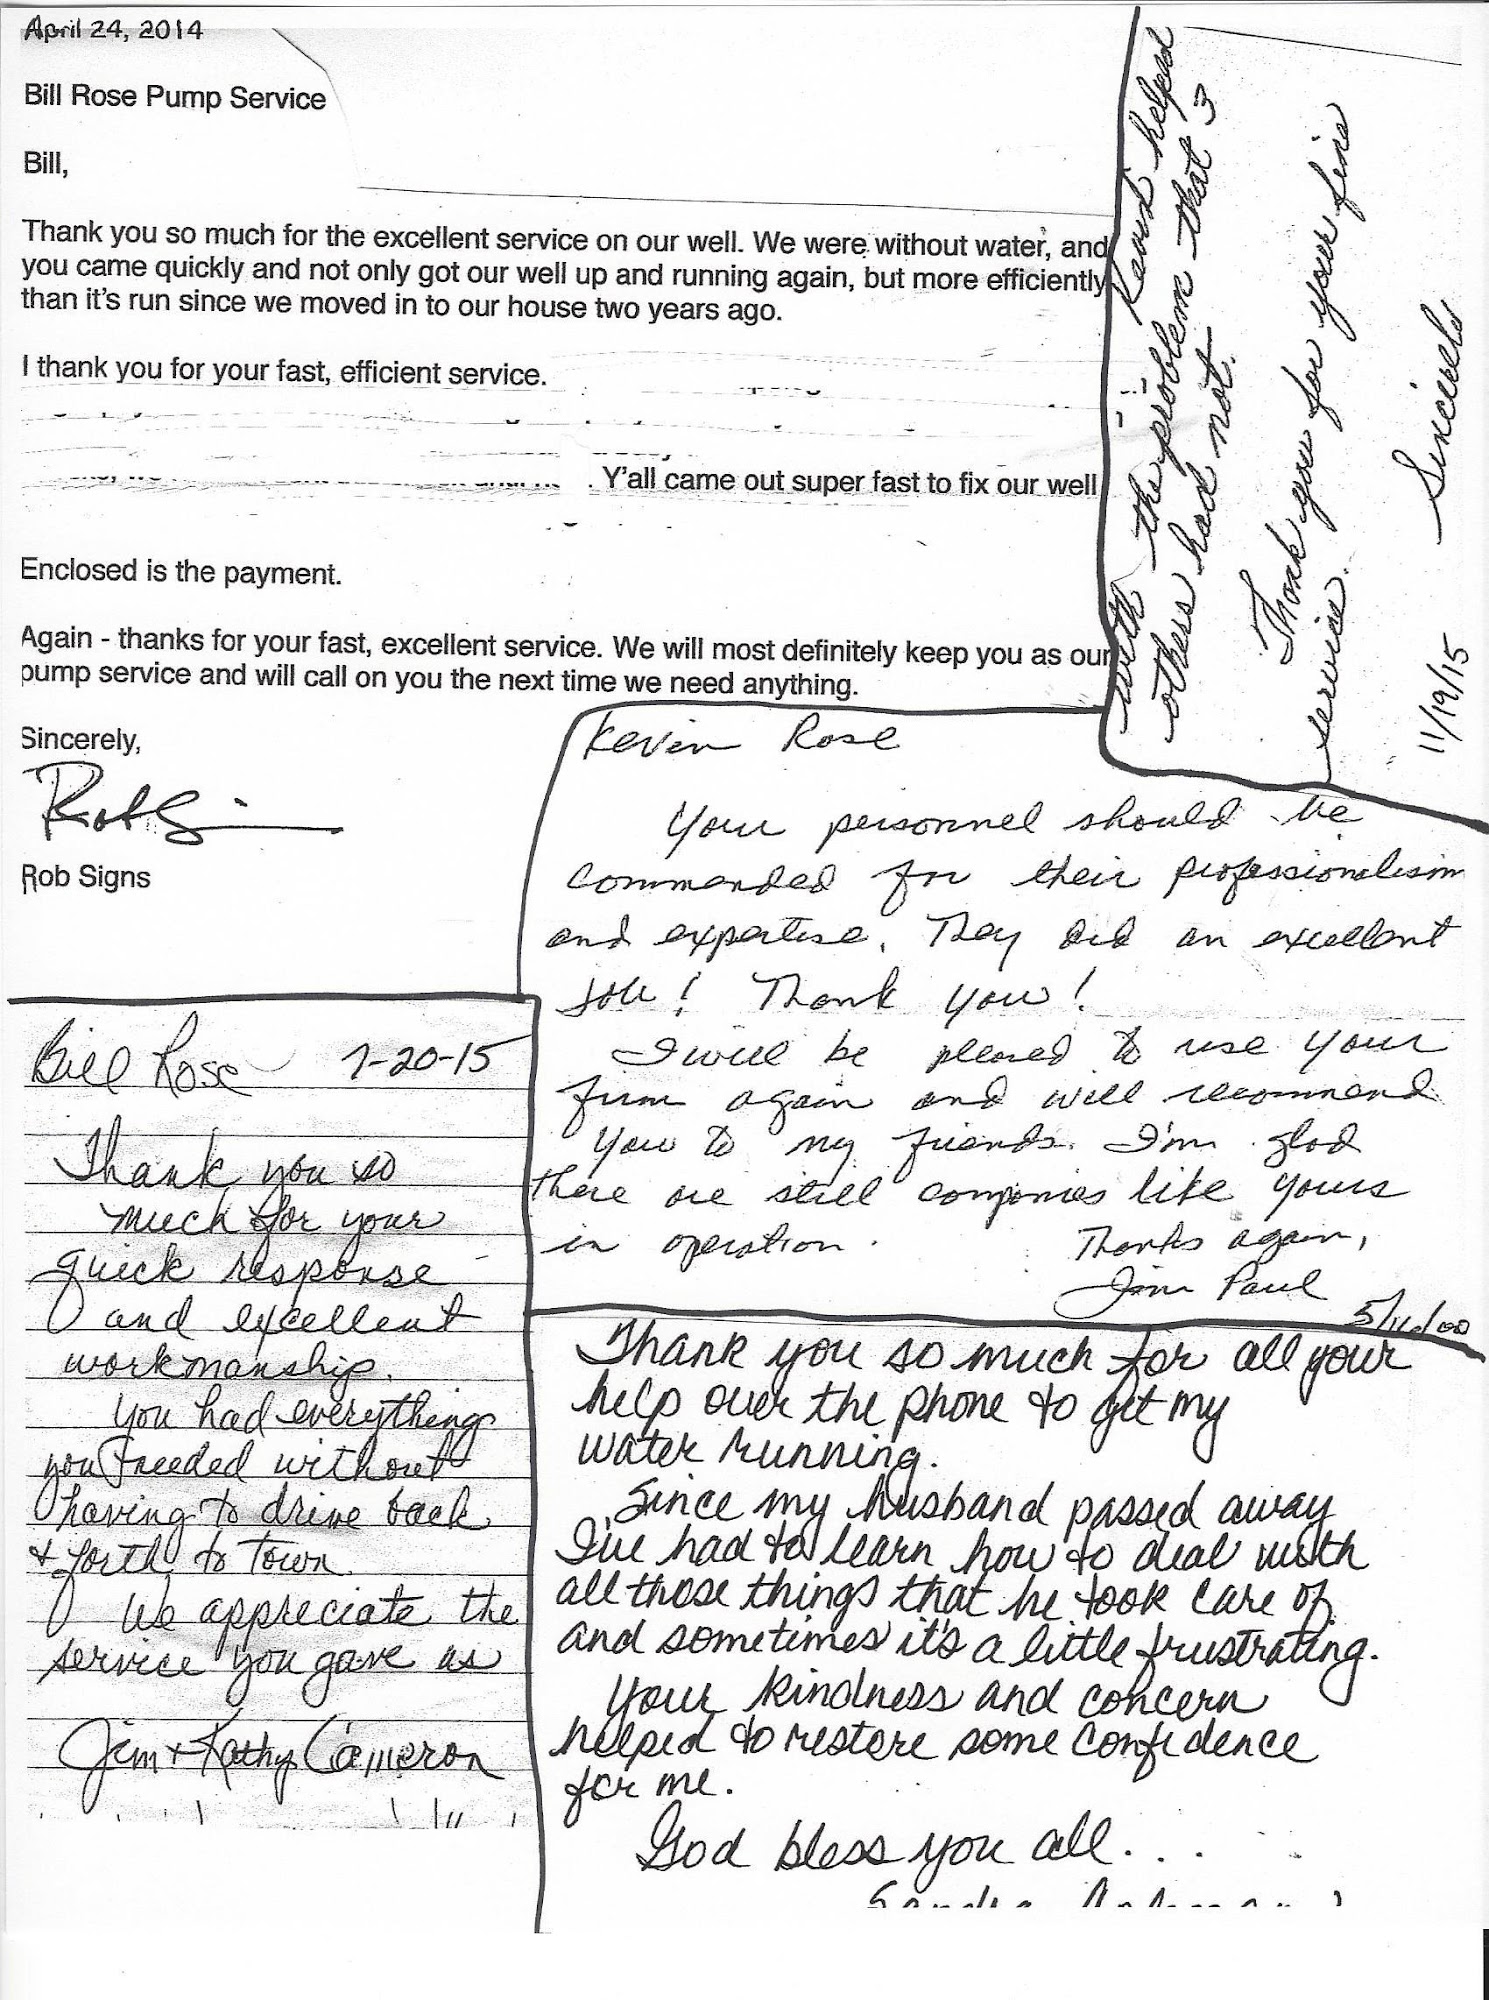 April 24, 2014
Bill Rose Pump Service
Bill,
Thank you so much for the excellent service on our well. We were without water, and
you came quickly and not only got our well up and running again, but more efficiently
than it's run since we moved in to our house two years ago.
I thank you for your fast, efficient service.
. Y'all came out super fast to fix our well
Enclosed is the payment.
Again - thanks for your fast, excellent service. We will most definitely keep you as our
pump service and will call on you the next time we need anything.
Sincerely,
Rob Signs
Kevin helped
with the problem that 3
others had not.
Thank you for your fine
service.
Sincerely
11/19/15
Kevin Rose
Your personnel should be
commended for their professionalism
and expertise. They did an excellent
job! Thank you!
I will be pleased to use your
firm again and will recommend
you to my friends. I'm glad
there are still companies like yours
in operation.
Thanks again,
Jim Paul
Bill Rose 7-20-15
Thank you so
much for your
quick response
and excellent
workmanship.
You had everything
you needed without
having to drive back
& forth to town.
We appreciate the
service you gave us
Jim & Kathy Cameron
Thank you so much for all your
help over the phone to get my
water running.
Since my husband passed away
I've had to learn how to deal with
all those things that he took care of
and sometimes it's a little frustrating.
Your kindness and concern
helped to restore some confidence
for me.
God bless you all...
Sandra